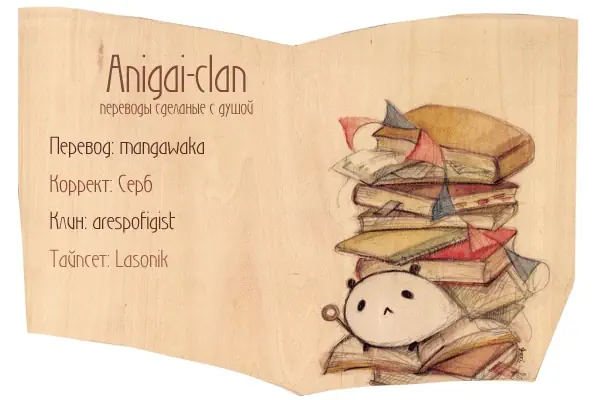 Anigai-clan
переводы сделаные с душой
Перевод: mangawaka
Коррект: Серб
Клин: arespofigist
Тайпсет: Lasonik